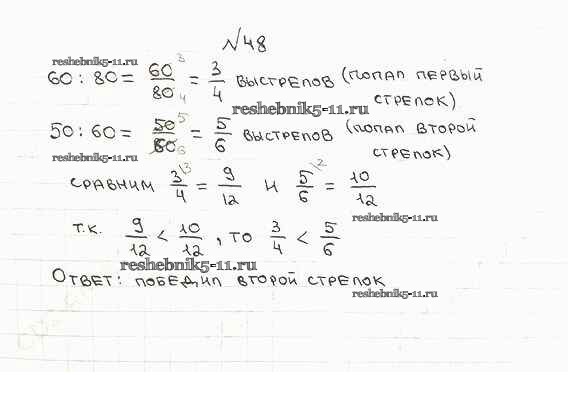 №48
reshebnik5-11.ru
60 : 80 = 60/80 3 4 = 3/4 выстрелов (попал первый
стрелок)
reshebnik5-11.ru
50 : 60 = 50/60 5 6 = 5/6 выстрелов (попал второй
стрелок)
reshebnik5-11.ru
сравним 3/4 \3 = 9/12 и 5/6 \2 = 10/12
reshebnik5-11.ru
т.к. 9/12 < 10/12, то 3/4 < 5/6
reshebnik5-11.ru
Ответ: победил второй стрелок
reshebnik5-11.ru